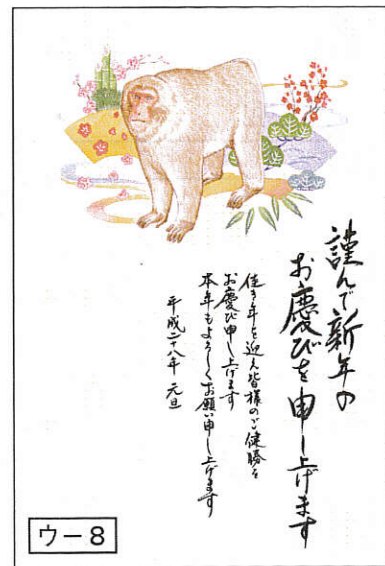 謹んで新年の
お慶びを申し上げます
佳き年を迎え皆様のご健勝を
お慶び申し上げます
本年もよろしくお願い申し上げます
平成二十八年 元旦
ウー8